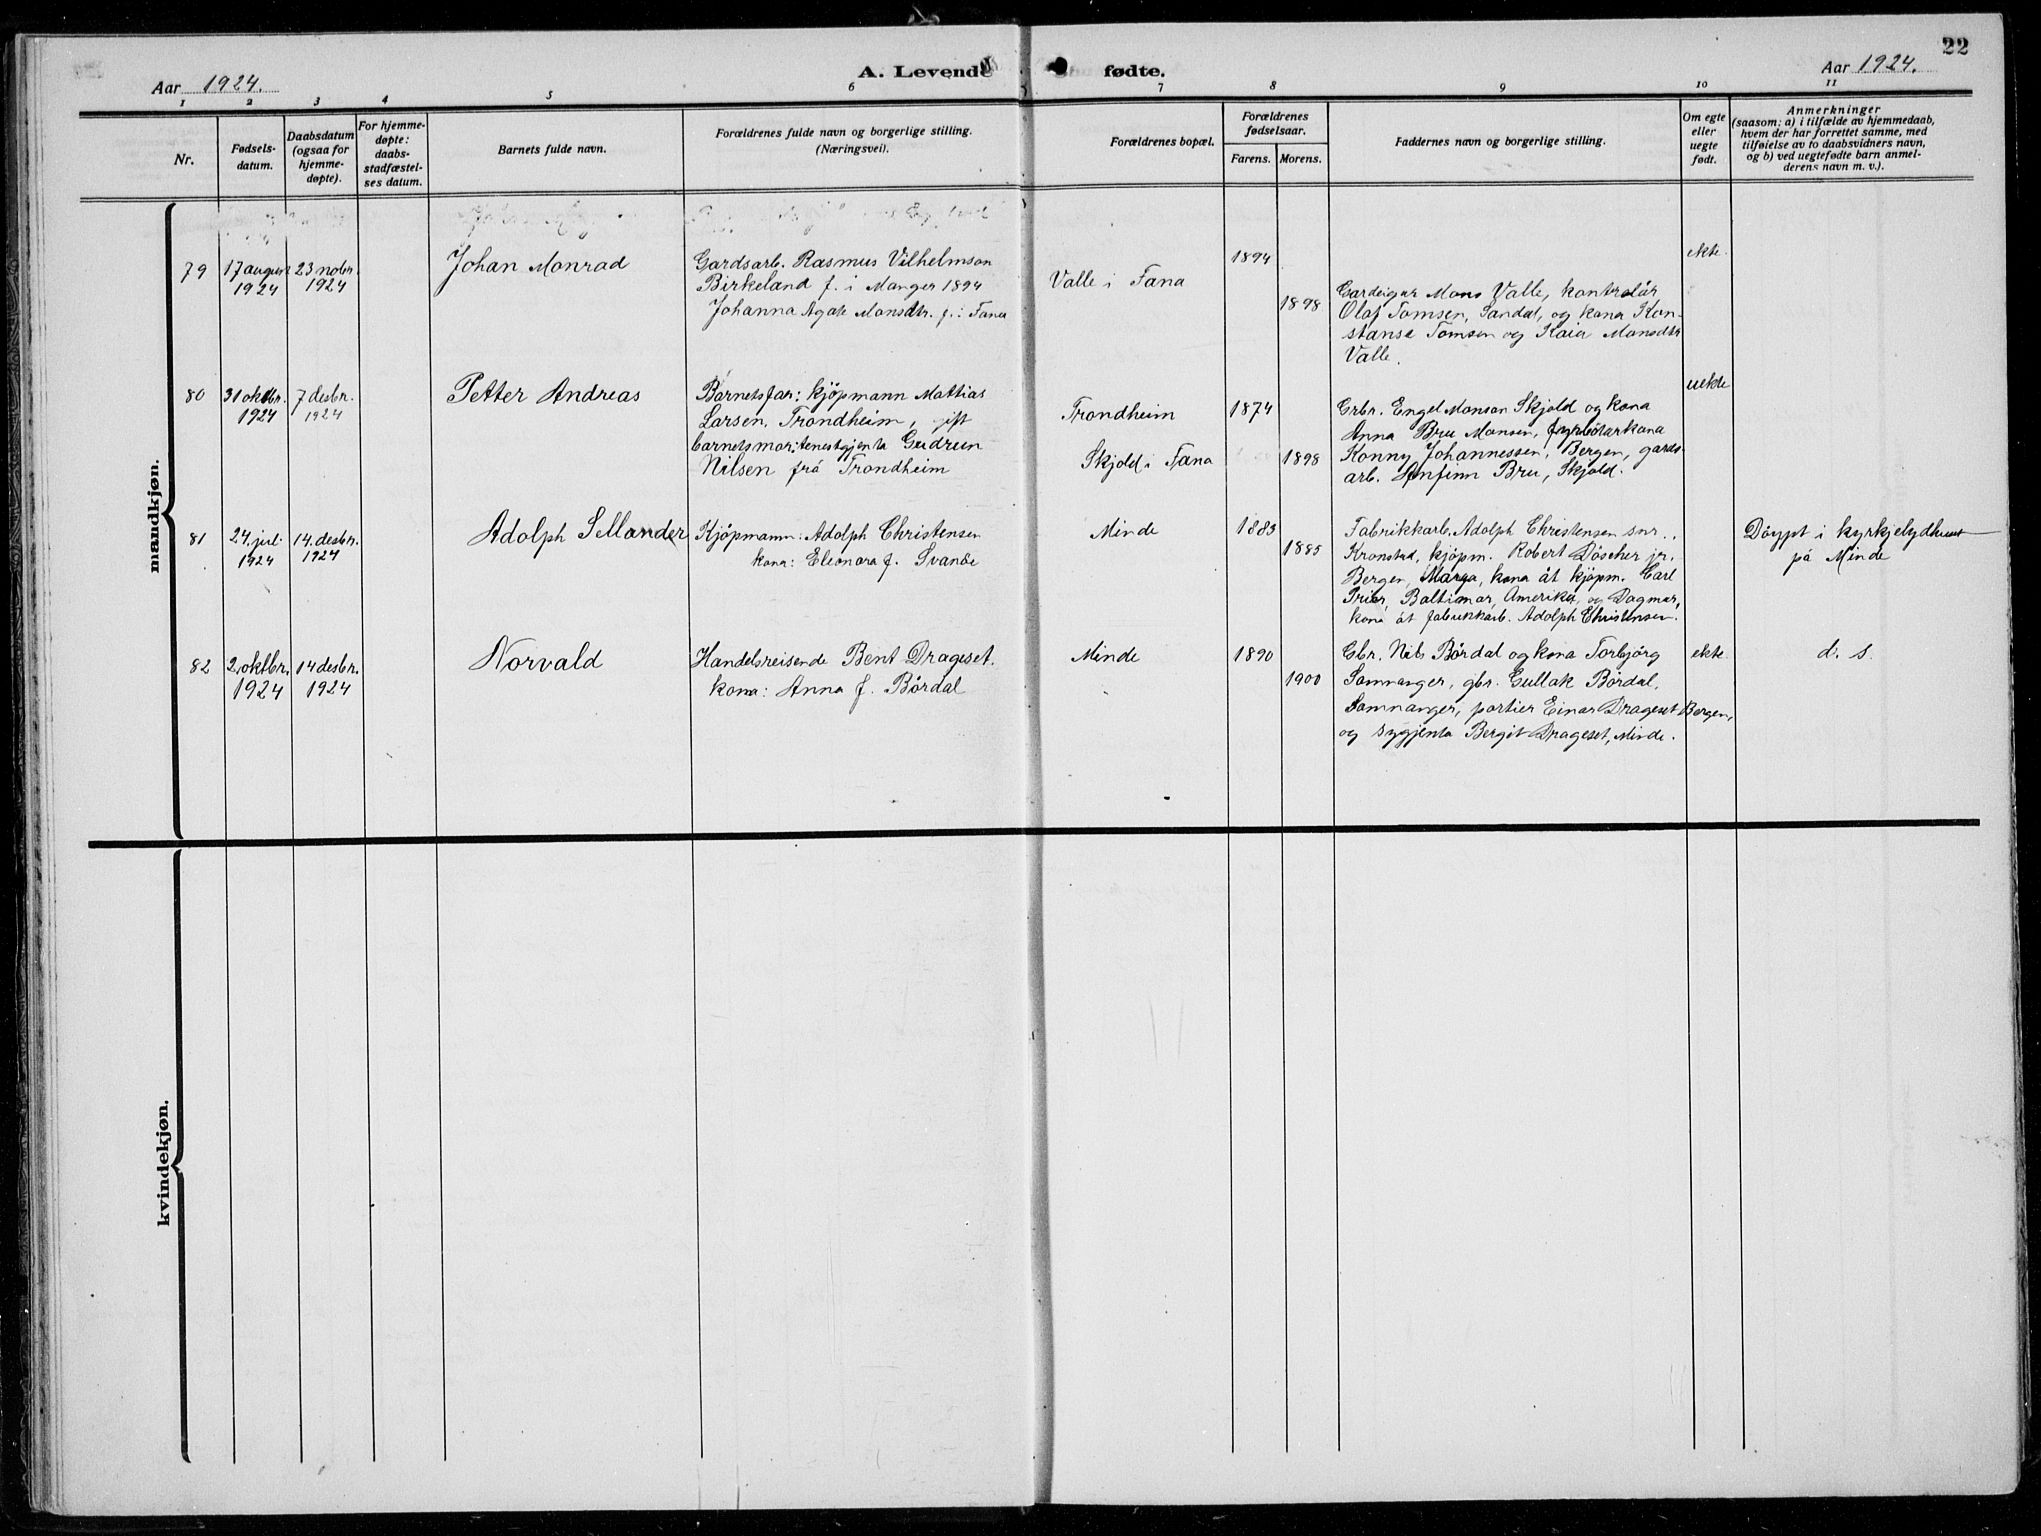 22
Aar 1924.
A. Levende fødte.
Aar 1924.
1 2 3 4 5 6 7 8 9 10 11
Nr.
Fødsels-
datum.
Daabsdatum
(ogsaa for
hjemme-
døpte).
For hjemme-
døpte:
daabs-
stadfæstel-
ses datum.
Barnets fulde navn.
Forældrenes fulde navn og borgerlige stilling.
(Næringsvei).
Forældrenes bopæl.
Forældrenes
fødselsaar.
Farens. Morens.
Faddernes navn og borgerlige stilling.
Om egte
eller
uegte
født.
Anmerkninger
(saasom: a) i tilfælde av hjemmedaab,
hvem der har forrettet samme, med
tilføielse av to daabsvidners navn,
og b) ved uegtefødte barn anmel-
derens navn m. v.).
mandkjøn.
79
17 august
1924
23 nobr.
1924
Johan Monrad
Gardsarb. Rasmus Vilhelmson
Birkeland f. i Manger 1894
Johanna Agate Monsdtr. f. i Fana
Valle i Fana
1894
1898
Gardeigar Mons Valle, kontrolör
Olaf Tomsen, Sandal, og kona Kon-
stanse Tomsen og Kaia Monsdtr
Valle.
ekte
80
31 oktbr.
1924
7 desbr.
1924
Petter Andreas
Barnetsfar: kjöpmann Mattias
Larsen, Trondheim, gift
barnetsmor: tenestgjenta Gudrun
Nilsen frå Trondheim
Trondheim
Skjold i Fana
1874
1898
Grbr. Engel Monsen Skjold og kona
Anna Bru Monsen, fyrbötarkona
Konny Johannessen, Bergen, gards-
arb. Anfinn Bru, Skjold.
uekte
81
24. jul.
1924
14. desbr.
1924
Adolph Sellander
Kjöpmann: Adolph Christensen
kona: Eleonora f. Svanöe
Minde
1883
1885
Fabrikkarb. Adolph Christensen snr.,
Kronstad, kjöpm. Robert Döscher jr.
Bergen, Marga, kona åt kjöpm. Carl
Prier, Baltimor, Amerika, og Dagmar,
kona åt fabrikkarb. Adolph Christensen.
Döypt i kyrkjelydhuset
på Minde
82
2. oktbr.
1924
14 desbr.
1924
Norvald
Handelsreisende Bent Drageset.
kona: Anna f. Bördal
Minde
1890
1900
Gbr. Nils Bördal og kona Torbjörg
Samnanger, gbr. Gullak Bördal,
Samnanger, portier Einar Drageset Bergen,
og sygjenta Bergit Drageset, Minde.
ekte
d. s.
kvindekjøn.